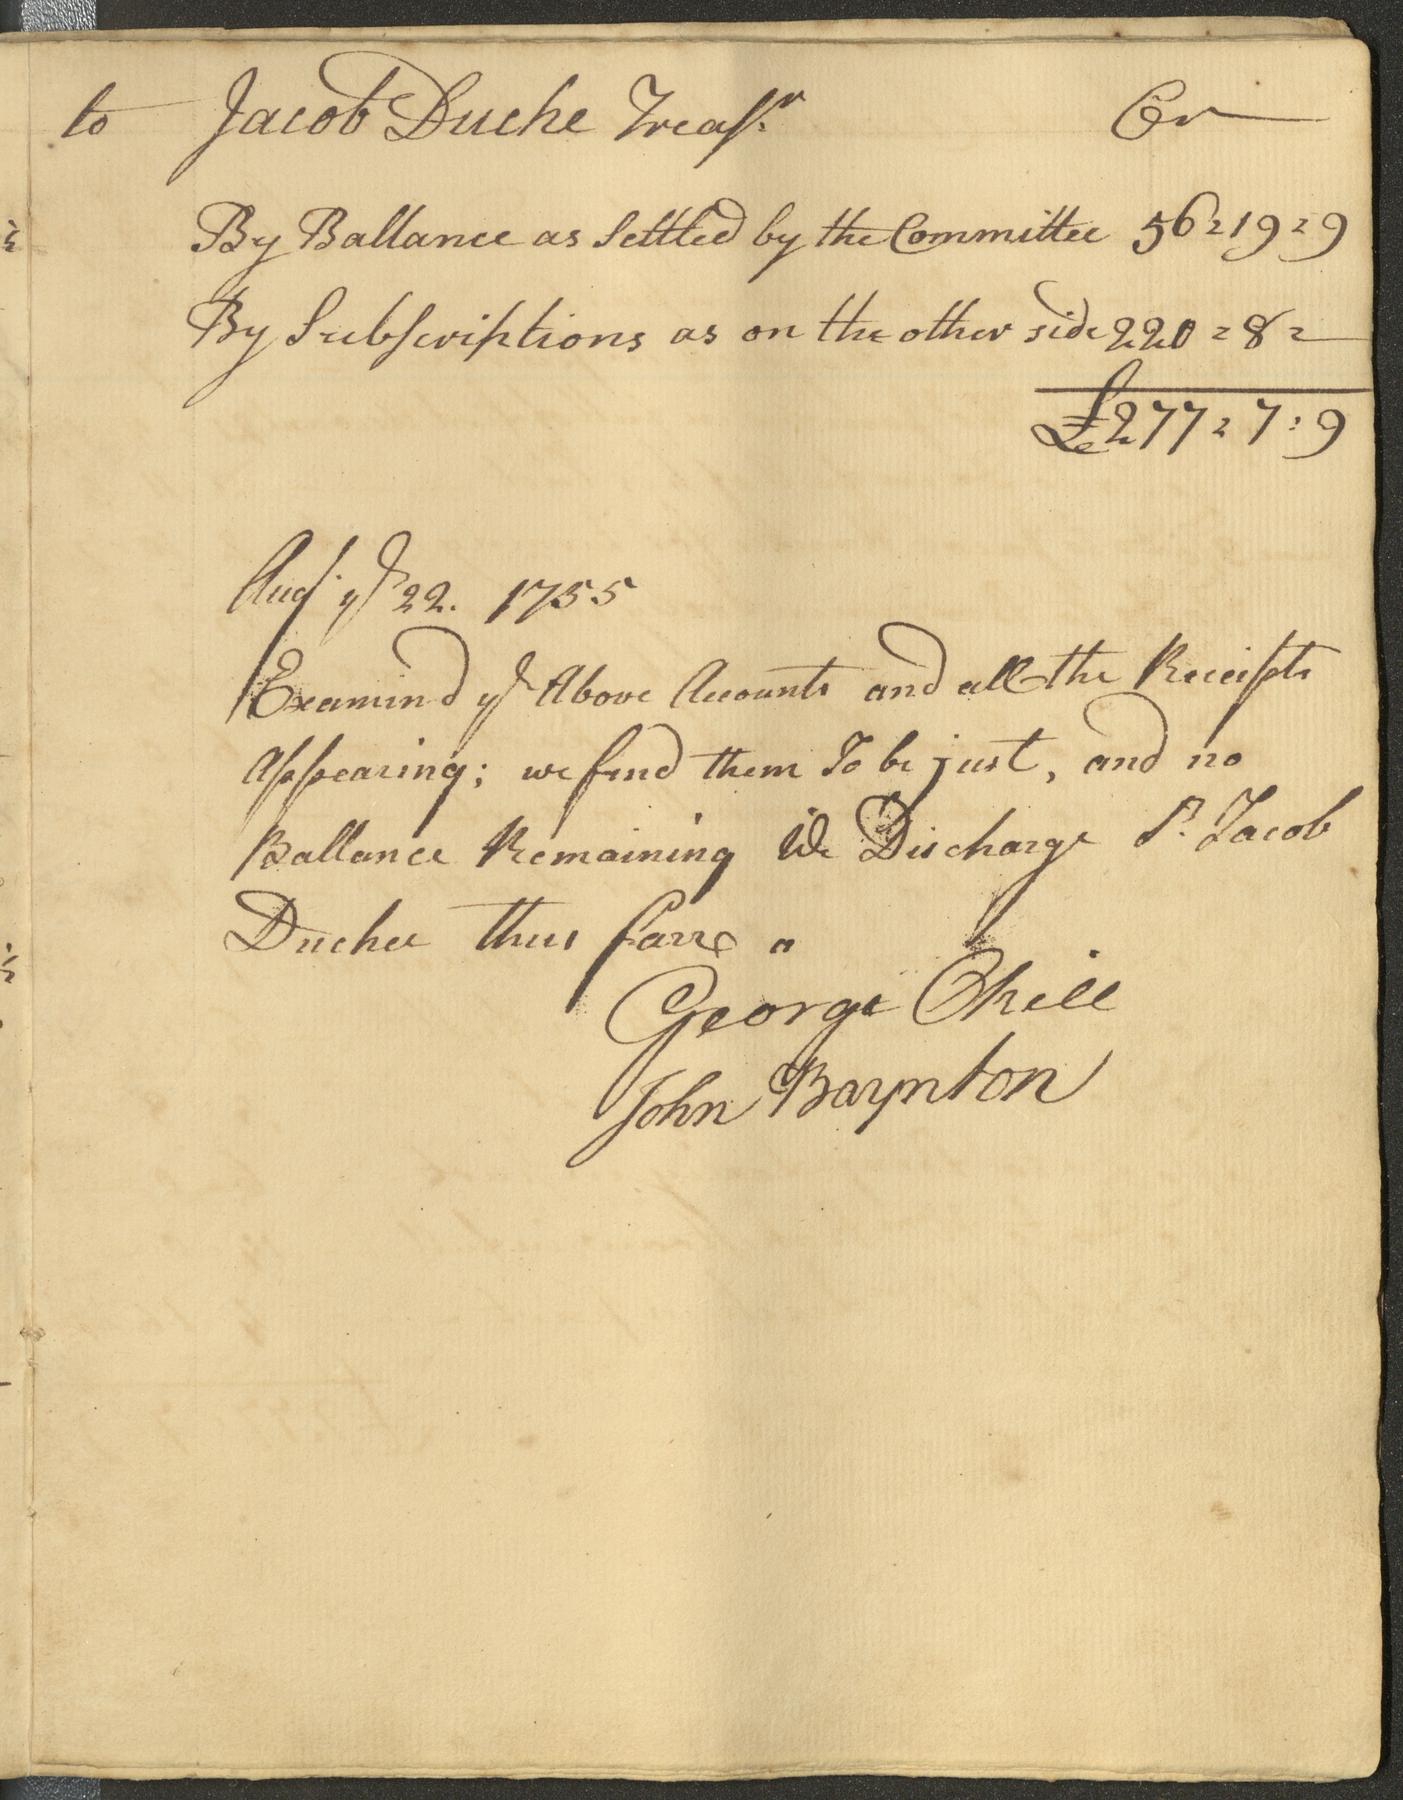 to Jacob Duche Treasr. Cr
By Ballance as Settled by the Committee 56 = 19 = 9
By Subscriptions as on the other side 220 = 8 =
£277 = 7 : 9
Augt. ye 22. 1755
Examind ye Above Accounts and all the Receipts
Appearing; we find them To be just, and no
Ballance Remaining We Discharge Sr. Jacob
Duchee thus farre
George Okill
John Baynton